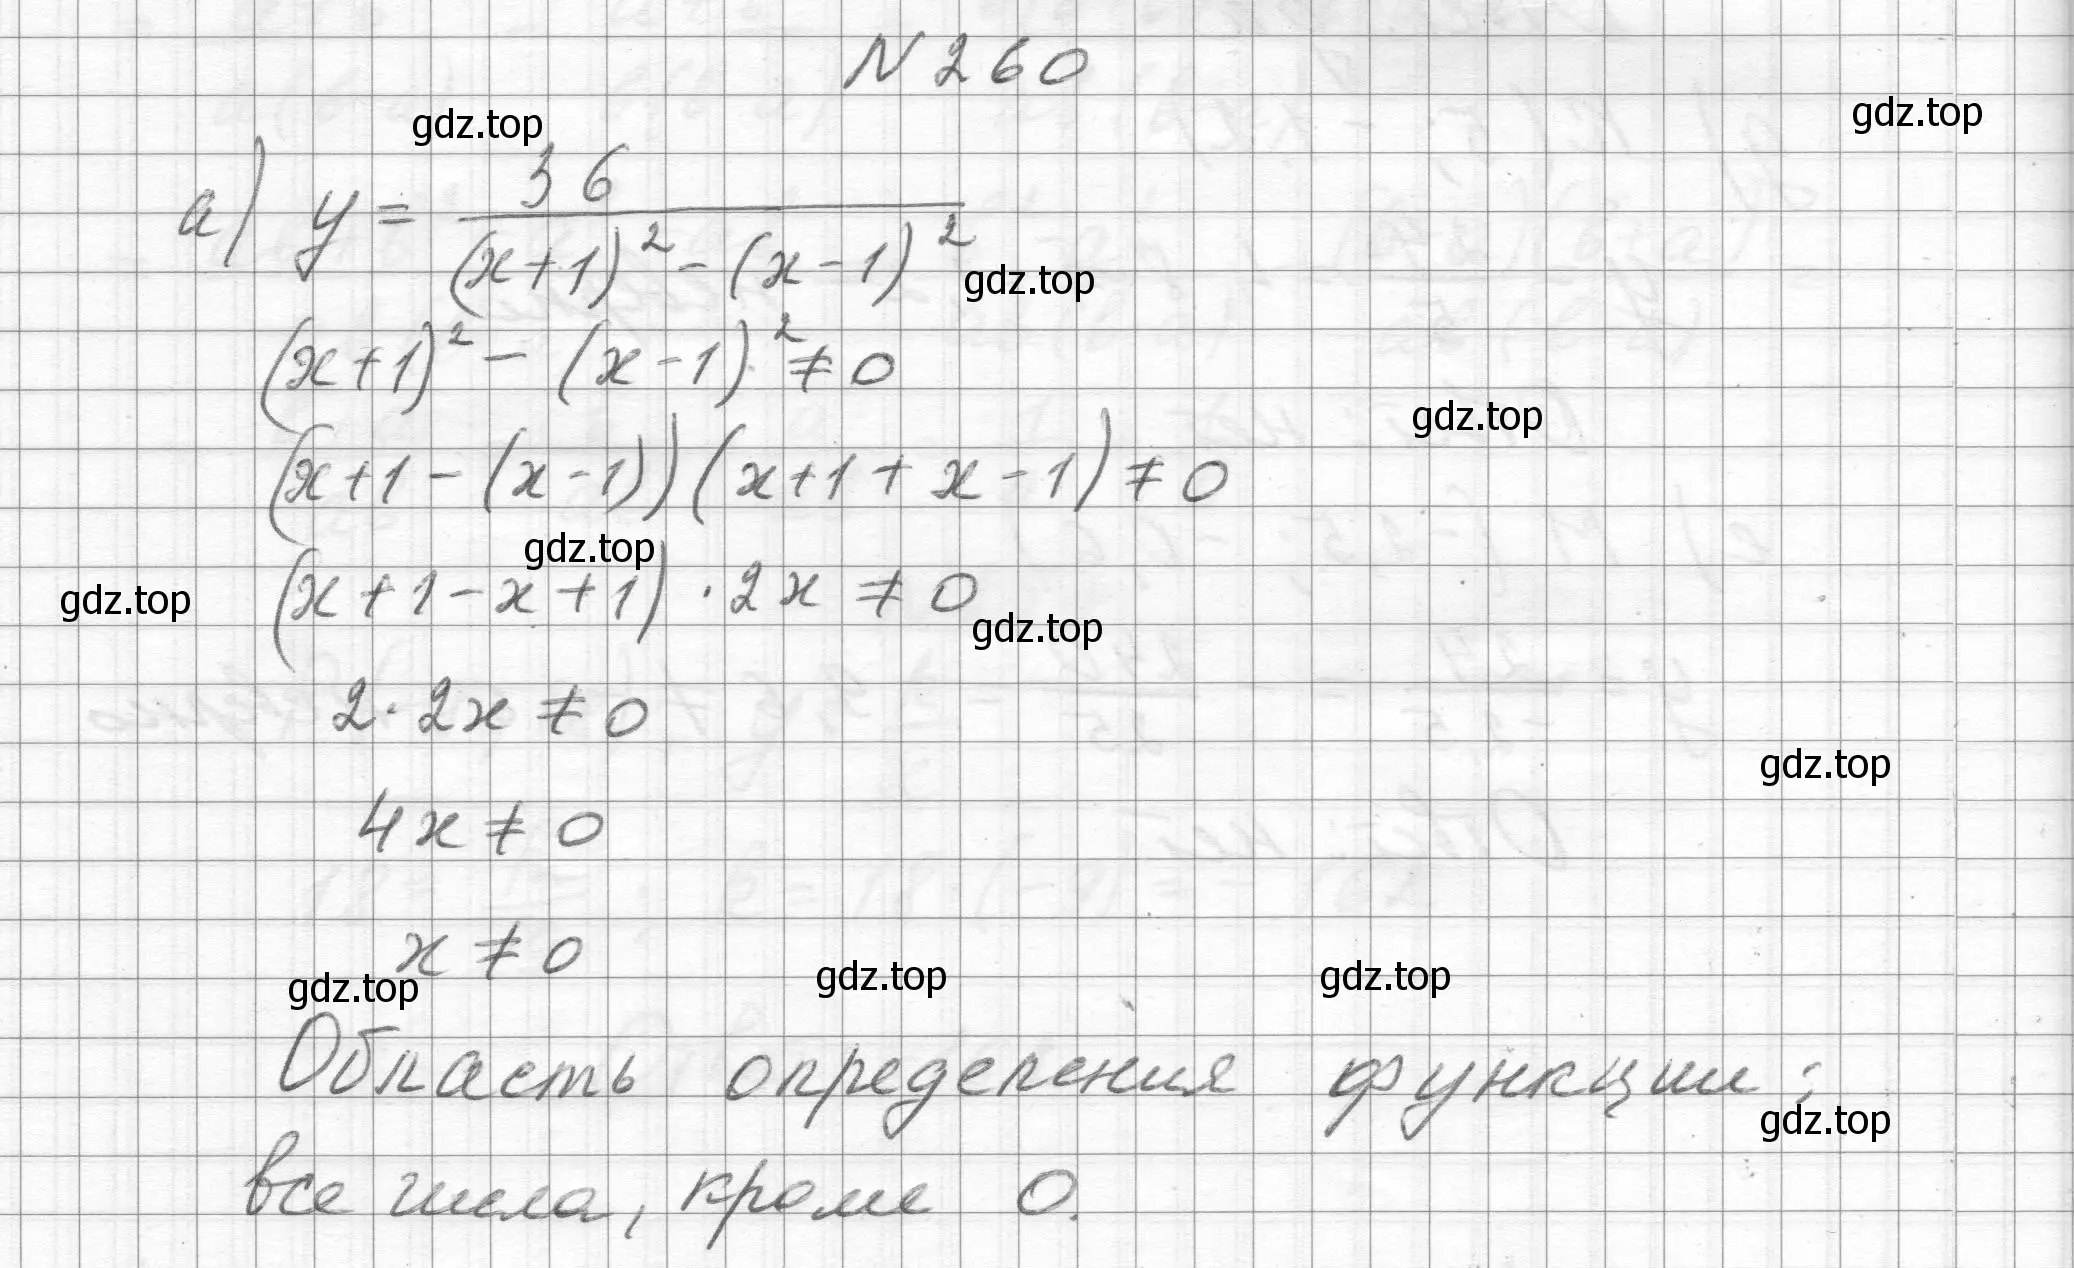 N 260
gdz.top
gdz.top
а) y = 36 / ((x+1)² - (x-1)²)
gdz.top
(x+1)² - (x-1)² ≠ 0
gdz.top
(x+1-(x-1))(x+1+x-1) ≠ 0
gdz.top
(x+1-x+1)·2x ≠ 0
gdz.top
gdz.top
2·2x ≠ 0
gdz.top
4x ≠ 0
x ≠ 0
gdz.top
gdz.top
gdz.top
Область определения функции:
gdz.top
все числа, кроме 0.